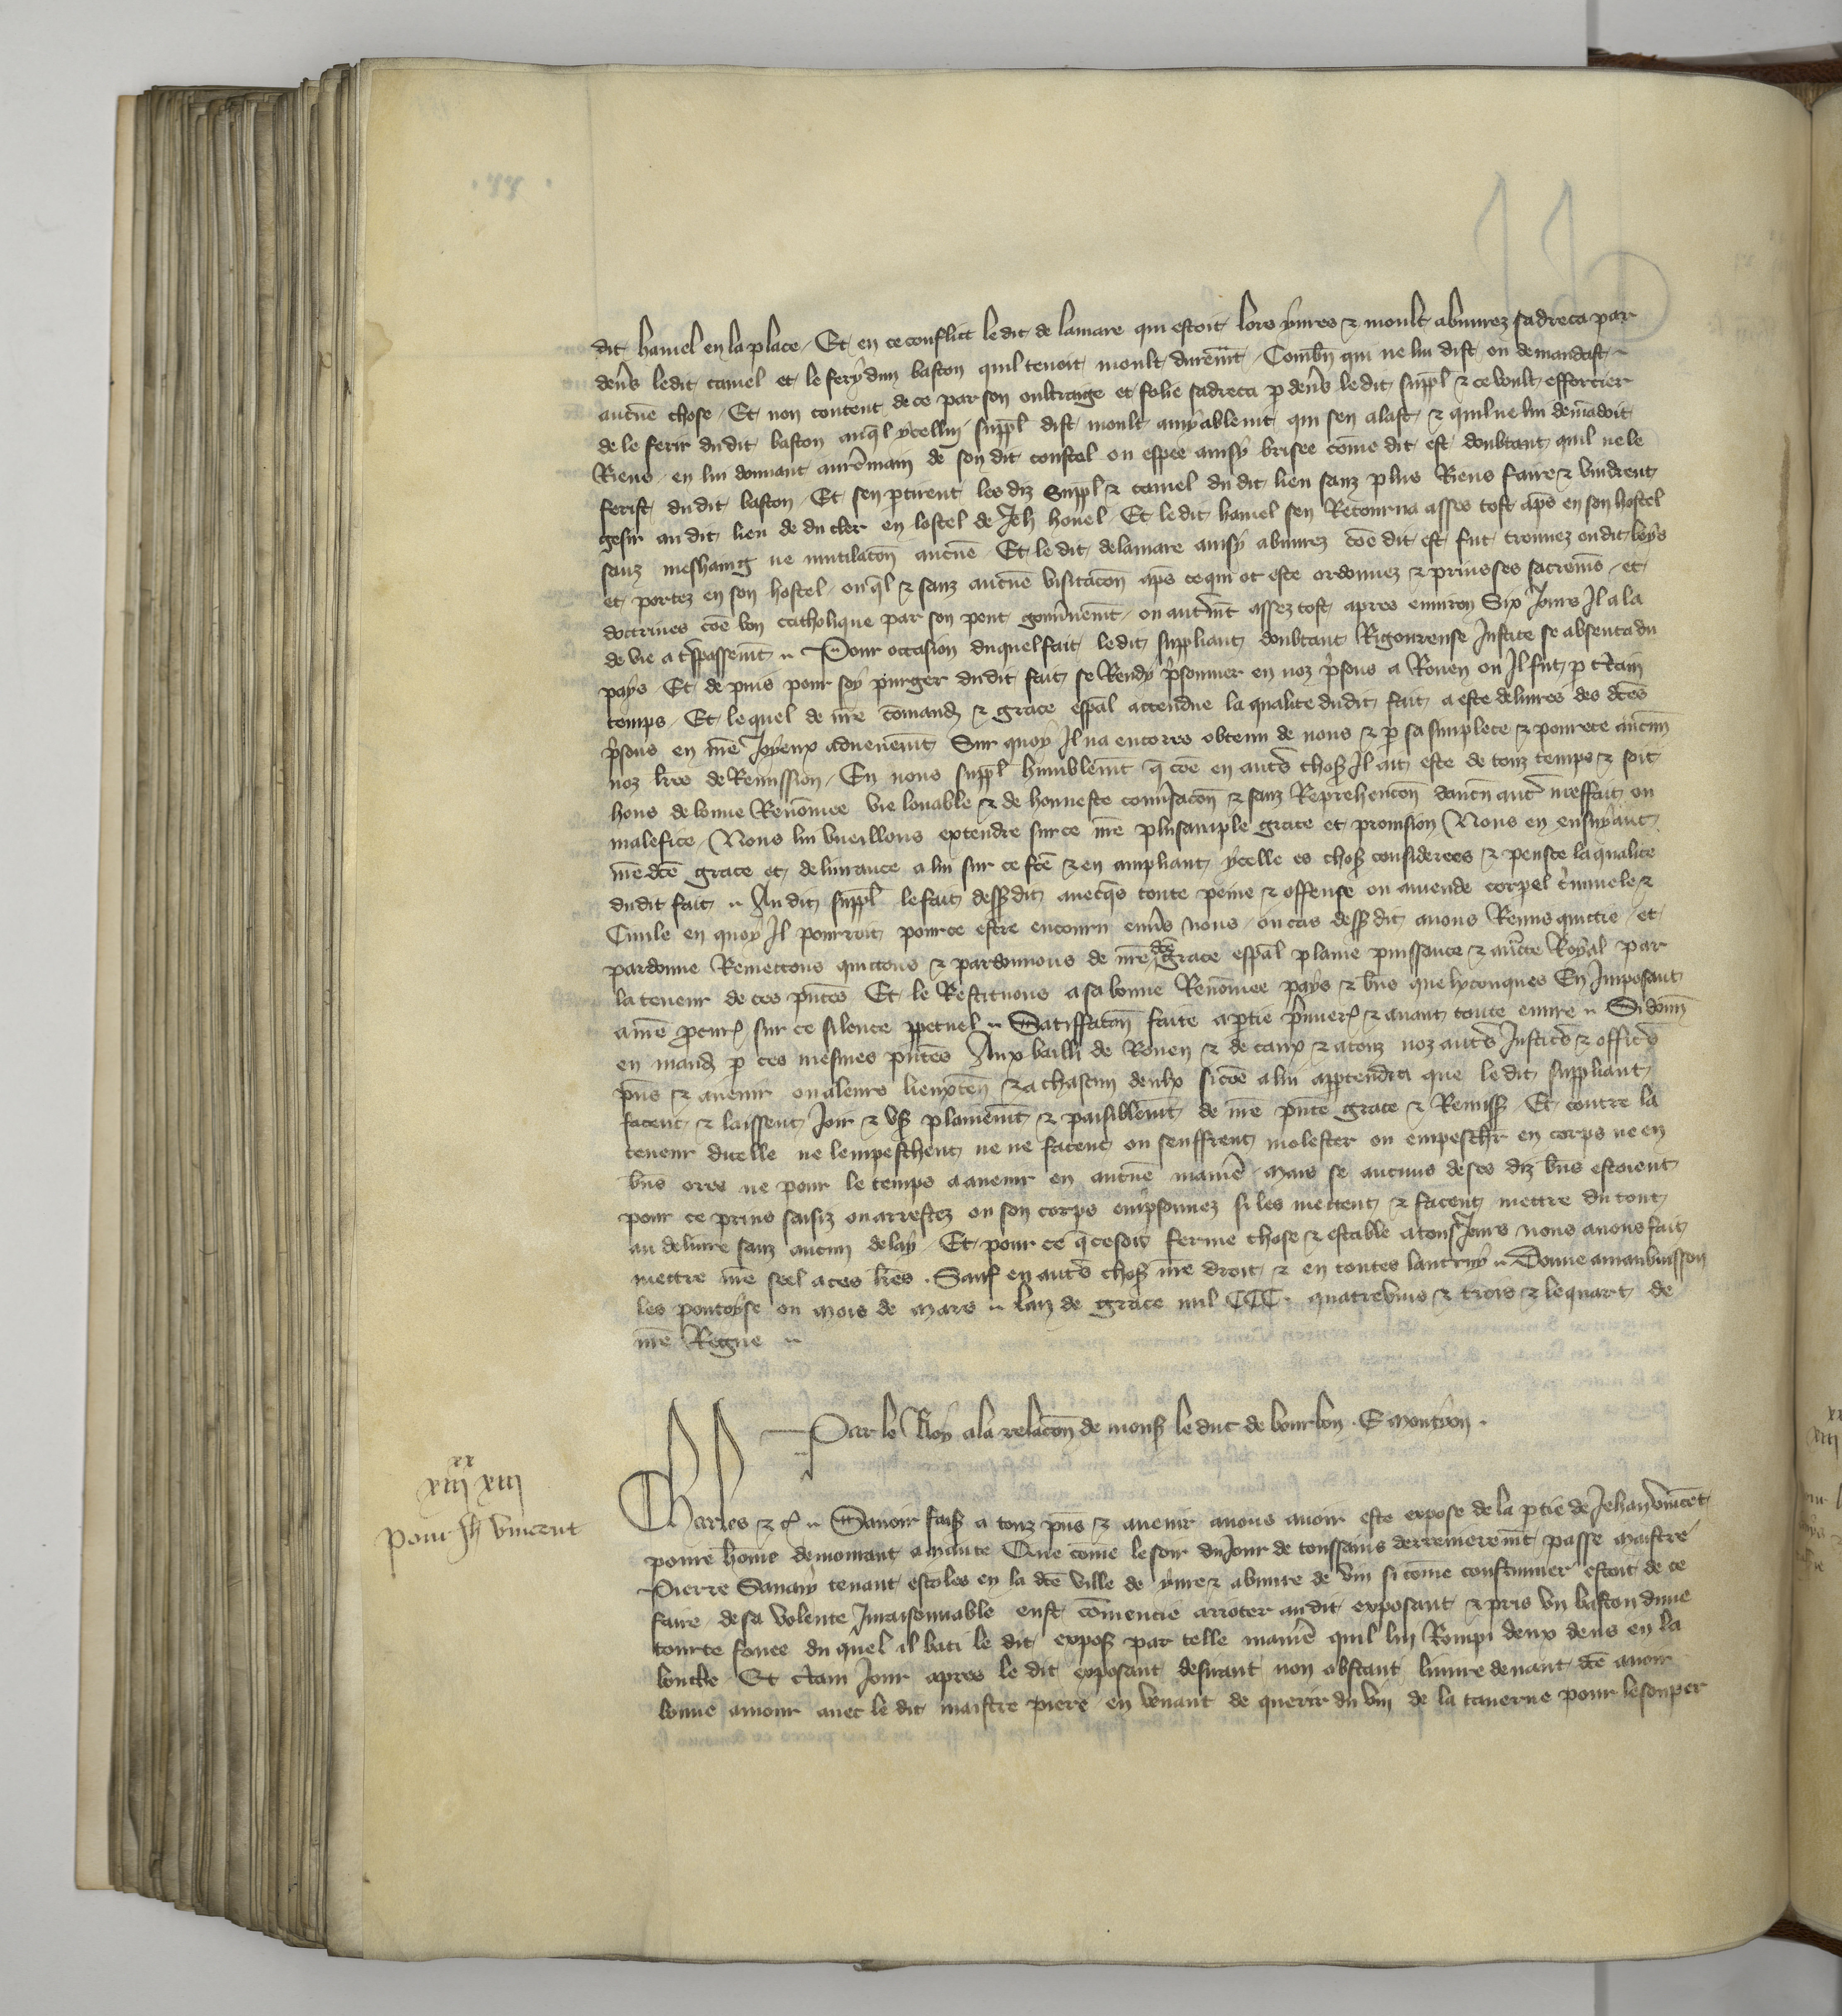 dit hamel en la place / Et en ce conflict ledit de lamare qui estoit lors yvres & moult abuvrez sadreca par
devs ledit camel et le fery dun baston quil tenoit moult duremēt / Combn̄ qui ne lui dist ou demandast
aucūe chose / Et non content de ce par son oultraige et folie sadreca p devs ledit suppl̄ & ce voult efforcier
de le ferir dudit baston auql̄ ycellui suppl̄ dist moult amyablemt qui sen alast & quil ne lui demādoit
Riens / en lui donnant arrēmain de son dit coustel ou espee ainsy brisee cōme dit est doubtant quil ne le
ferist dudit baston / Et sen ptirent les diz suppl̄ & camel du dit lieu sanz plus Riens faire & vindrent
gesir au dit lieu de du cler en lostel de Jeh houel / Et ledit hamel sen Retourna asses tost aps en son hostel
sanz meshaing ne mutilacōn aucūe / Et le dit delamare ainsy abuvrez cōe dit est fut trouvez ou dit boys
et portez en son hostel / ouql̄ & sanz aucūe visitacōn aps ce qui ot este ordonnez & prins ses sacremēs / et
doctrines cōe bon catholique par son petit gouvnemt ou autmt assez tost apres environ Six Jours Il ala
de vie a tspassemt .. Pour occasion duquel fait ledit suppliant doubtant Rigoureuse Justice se absenta du
pays Et de puis pour soy purger dudit fait se Rendy p̄sonnier en noz p̄sons a Rouen ou Il fut p ctain
temps / Et lequel de nrē cōmand & grace espāl attendue la qualite dudit fait a este delivres des dcēs
p̄sons en nrē Joyeux advenemt Sur quoy Il na encores obtenu de nous & p sa simplece & povrete aucūn
noz lrēs de Remission / En nous suppl̄ humblemt q̄ cōe en autrs chos̄ Il ait este de touz temps & soit
hons de bonne Renōmee vie louable & de honneste convsacōn & sanz Reprehencōn daucūn autr meffait ou
malefice / Nous lui vueillons extendre sur ce nrē plus ample grace et provision Nous en ensuyant
nrē dcē grace et delivrance a lui sur ce fcē & en ampliant ycelle es chos̄ considerees & pensee la qualite
dudit fait .. Au dit suppl̄ le fait dess̄dit avecqs toute peine & offense ou amende corpel crīminele &
Civile en quoy Il pourroit pour ce estre encouru envs nous / ou cas dess̄dit avons Remis quittie et
pardonne Remettons quittons & pardonnons de nrē dcē grace espāl plaine puissance & aucte Royal par
la teneur de ces pn̄tes Et le Restituons a sa bonne Renōmee pays & bns quelxconques En Imposant
a nrē pcur sur ce silence ppetuel .. Satiffacōn faite a ptie p̄mier & avant toute euvre .. Si donn̄
en mand p ces mesmes pn̄tes Aux bailli de Rouen & de caux & a touz noz autrs Justicrs & officrs
pn̄s & avenir ou a leurs lieuxten̄ & a chascun deulx si cōe a lui apptendra que le dit suppliant
facent & laissent Joir & us̄ plainemt & paisiblemt de nrē pn̄te grace & Remiss̄ / Et contre la
teneur dicelle ne lempeschent ne ne facent ou seuffrent molester ou empeschr en corps ne en
bns ores ne pour le temps a avenir en aucūe maniē / mais se aucuns de ses diz bns estoient
pour ce prins saisiz ou arrestez ou son corps emp̄sonnez si les mettent & facent mettre du tout
au delivre sanz aucun delay / Et pour ce q̄ ce soit ferme chose & estable a tousJours nous avons fait
mettre nrē seel a ces lrēs . Sauf en autrs chos̄ nrē droit & en toutes lautruy .. Donne a maubuisson
les pontoyse ou mois de mars .. lan de grace mil CCC . quatrevins & trois & le quart de
nrē Regne ..
Par le Roy a la relacōn de mons̄ le duc de bourbon . E montvon .
xx
xiiii xiii
pour Jh vincent
Charles & c .. Savoir fais̄ a touz pn̄s & avenir avons avoir este expose de la ptie de Jehan vincēt
povre hōme demourant a mante Que cōme le soir du Jour de toussains derrenieremt passe maistre
Pierre Savary tenant escoles en la dcē ville de yvre & abuvre de vin si cōme coustumier estoit de ce
faire / de sa volente Inraisonnable eust cōmencie arrioter au dit exposant & pris un baston dune
tourte fouee du quel il bati le dit expos̄ par telle maniē quil lui Rompi deux dens en la
bouche Et ctain Jour apres le dit exposant desirant non obstant linjure devant dcē avoir
bonne amour avec le dit maistre piere en venant de querir du vin de la taverne pour le souper